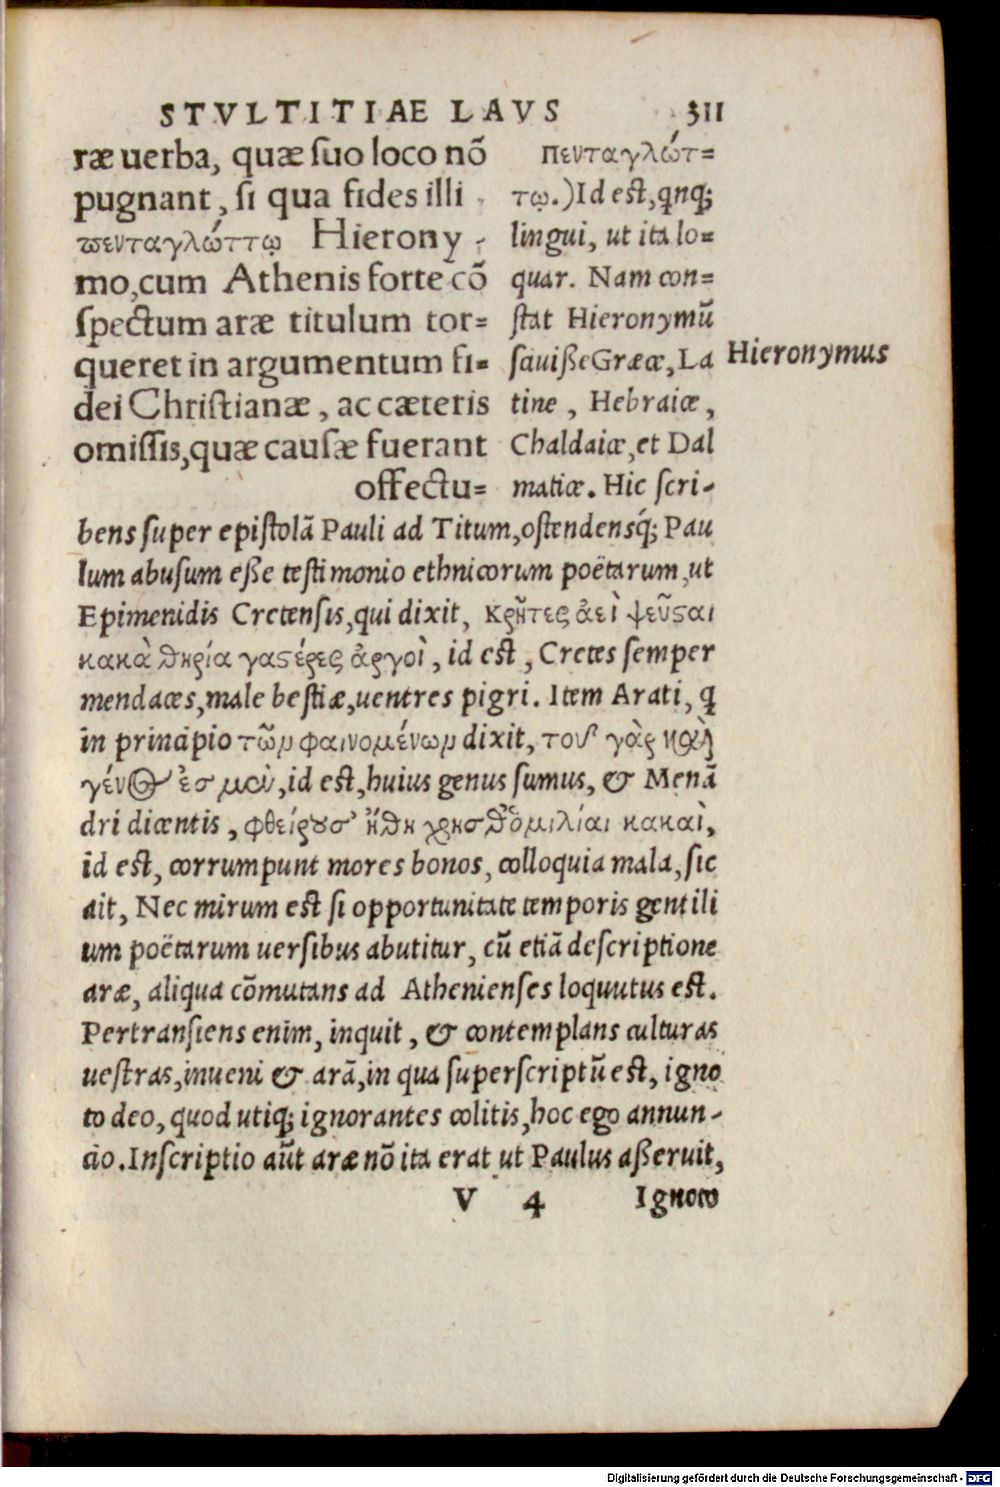 STVLTITIAE LAVS 311
ræ uerba, quæ suo loco nõ
pugnant, si qua fides illi
ϖενταγλώττῳ Hierony-
mo, cum Athenis forte cõ
spectum aræ titulum tor=
queret in argumentum fi=
dei Christianæ, ac cæteris
omissis, quæ causæ fuerant
offectu=
πενταγλώτ=
τῳ.) Id est, qnq;
lingui, ut ita lo=
quar. Nam con=
stat Hieronymũ
sciuisse Græcæ, La
tine, Hebraicæ,
Chaldaicæ, et Dal
maticæ. Hic scri-
Hieronymus
bens super epistolã Pauli ad Titum, ostendensq́; Pau
lum abusum esse testimonio ethnicorum poëtarum, ut
Epimenidis Cretensis, qui dixit, κρῆτες ἀεὶ ψεῦϛαι
κακὰ θηρία γαϛέρες ἀργοὶ, id est, Cretes semper
mendaces, male bestiæ, uentres pigri. Item Arati, q
in principio τῶν φαινομένων dixit, τοῦ γὰρ καὶ
γένος ἐσμὲν, id est, huius genus sumus, & Menã
dri dicentis, φθείρουσ' ἤθη χρησθ' ὁμιλίαι κακαὶ,
id est, corrumpunt mores bonos, colloquia mala, sic
ait, Nec mirum est si opportunitate temporis gentili
um poëtarum uersibus abutitur, cũ etiã descriptione
aræ, aliqua cõmutans ad Athenienses loquutus est.
Pertransiens enim, inquit, & contemplans culturas
uestras, inueni & arã, in qua superscriptũ est, igno
to deo, quod utiq; ignorantes colitis, hoc ego annun-
cio. Inscriptio aũt aræ nõ ita erat ut Paulus asseruit,
V 4 Ignoto
Digitalisierung gefördert durch die Deutsche Forschungsgemeinschaft - DFG